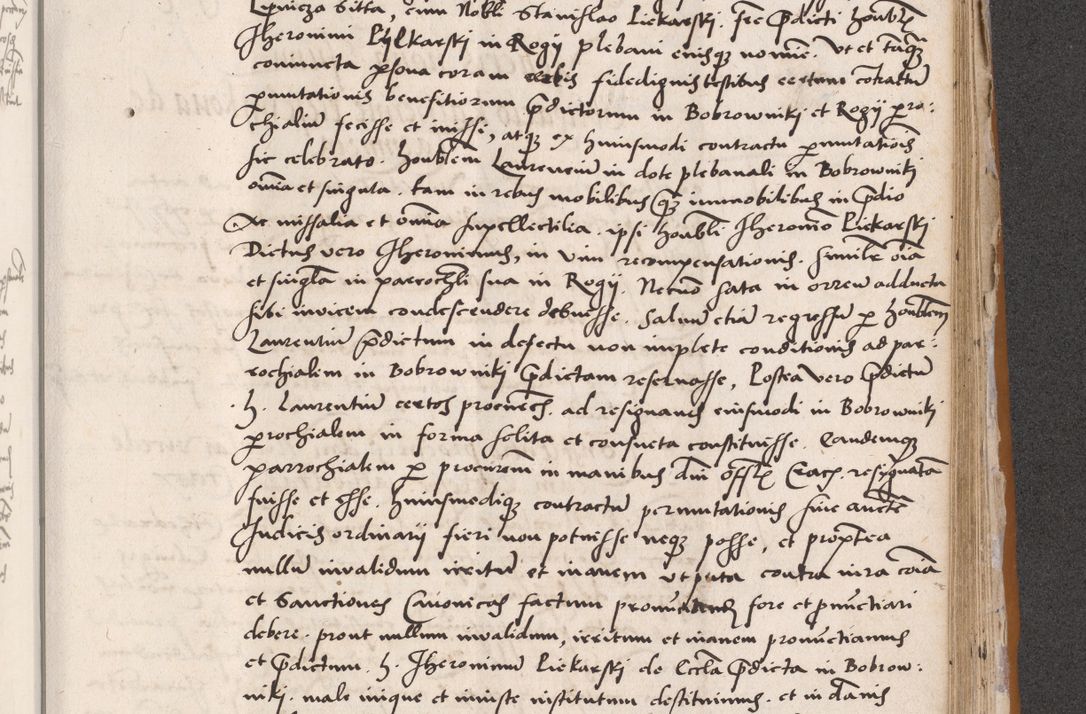 Lipnicza Sitta, cum Nobli Stanislao Piekarski, fre p̄dicti honbl
Jheronimi Piekarski in Rogij plebani eiusq nomine. Ut et tāq
coniuncta psona coram certis fidedignis testibus certum cotractū
pmutationis beneficiorum p̄dictorum in Bobrowniki et Rogij pero-
chialiū fecisse et inisse, atq ex huiusmodi contractu pmutationis
sic celebrato. honblem Laurenciū in dote plebanali in Bobrowniki
omīa et singula. tam in rebus mobilibus q̄ immobilibus in p̄dio
Ac missalia et omīa supellectilia. ipsi honbli Jheronīo Piekarski
Dictus vero Jheronimus, in vim recompensationis. Simile oīa
et singla in parrochli sua in Rogij. Necnō sata in orreū adducta
sibi invicem condescendere debuisse. Salvū etiā regressū p honblem
Laurentiū p̄dictum in defectu non implete conditionis ad par-
rochialem in Bobrowniki p̄dictam reservasse, Postea vero p̄dictū
h. Laurentiū certos procures. ad resignand eiusmodi in Bobrowniki
prochialem in forma solita et consueta constituisse. Eandemq
parrochialem p procurem in manibus dni offlis Crac. resignatā
fuisse et esse. huiusmodiq contractū permutationis sine aucte
Judicis ordinarij fieri non potuisse neq posse, et propterea
nullū invalidum irritū et inanem utputa contra iura coīa
et Sanctiones Canonicas factum pronunciand fore et pnunctiari
debere. prout nullum invalidum, irritum et inanem pronunctiamus
et p̄dictum. h. Jheronimū Piekarski de Eccla p̄dicta in Bobrow-
niki. male inique et iniuste institutum destituimus. et in dānis